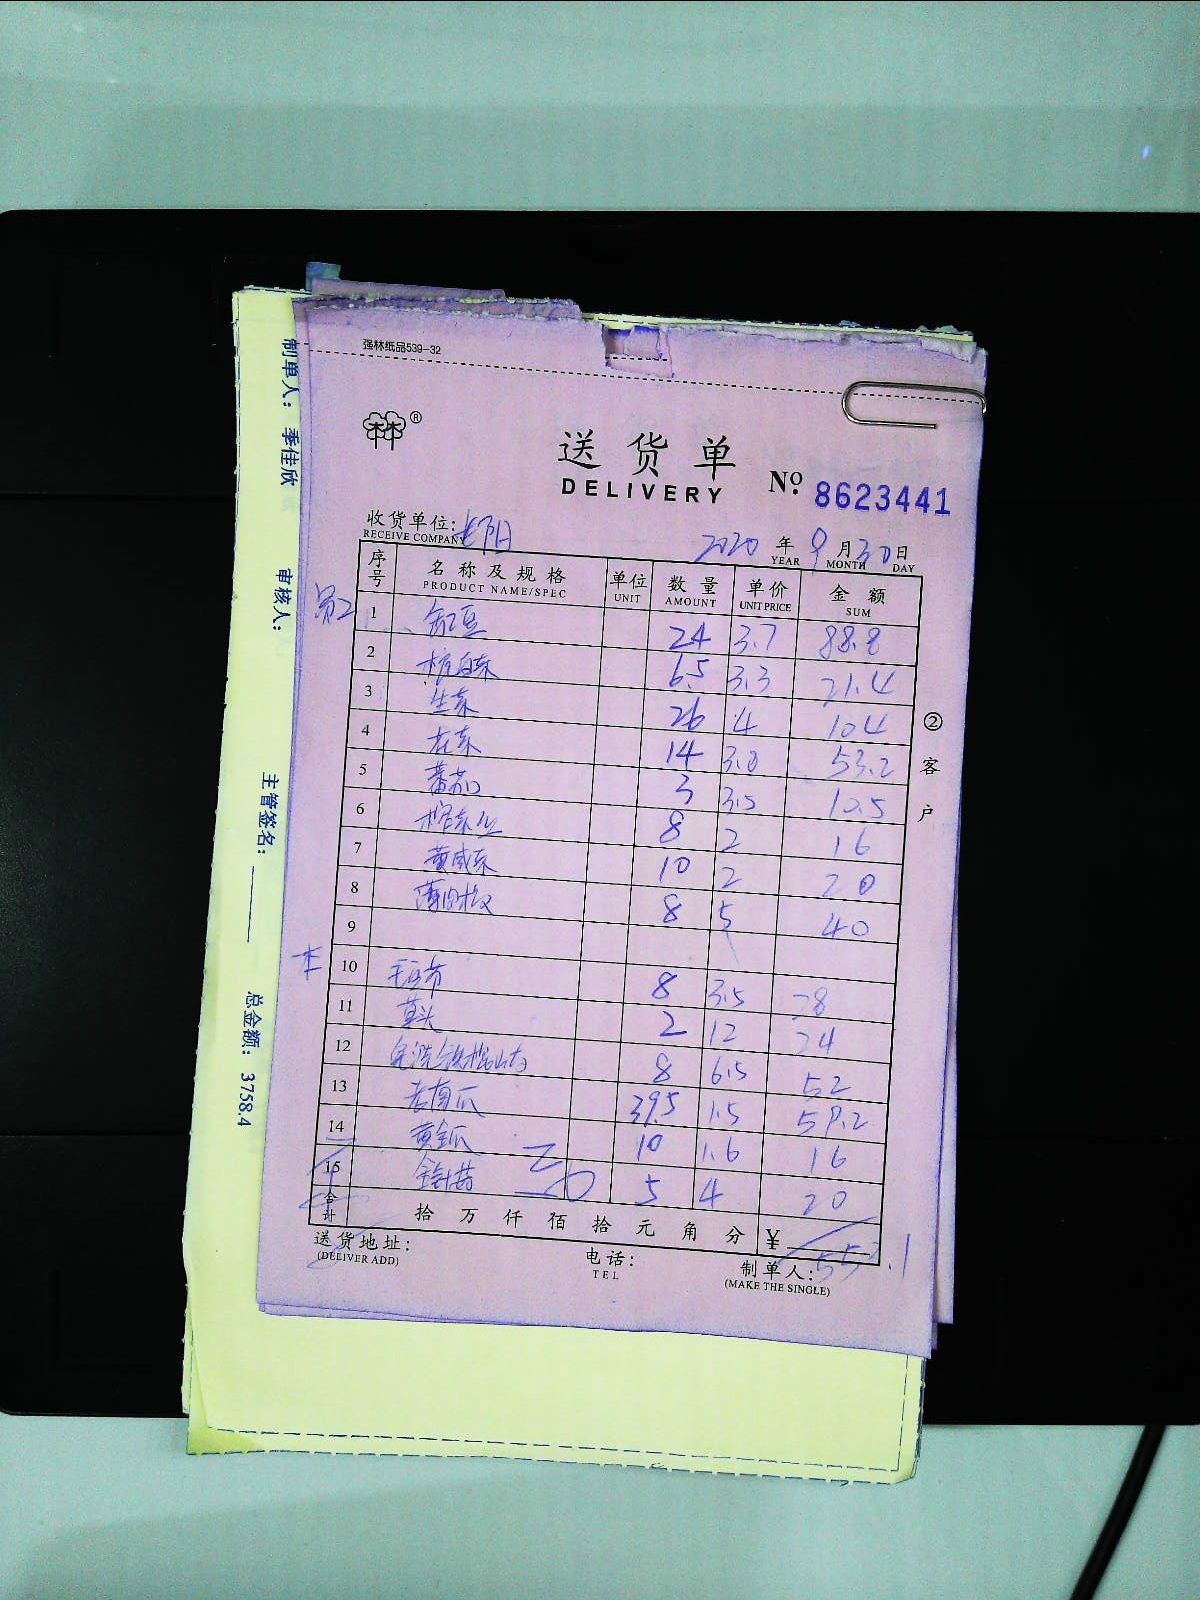 强林纸品539-32
®
送货单
DELIVERY
Nº. 8623441
收货单位:
RECEIVE COMPANY
2020 年 9 月 30 日
YEAR MONTH DAY
序号 名称及规格 单位 数量 单价 金额
PRODUCT NAME/SPEC UNIT AMOUNT UNIT PRICE SUM
1 豇豆 24 3.7 88.8
2 6.5 3.3 21.4
3 生菜 26 4 104
4 14 3.8 53.2
5 番茄 3 3.5 10.5
6 8 2 16
7 10 2 20
8 8 5 40
9
10 8 3.5 28
11 2 12 24
12 8 6.5 52
13 老南瓜 39.5 1.5 59.2
14 黄金瓜 10 1.6 16
15 5 4 20
合计 拾万仟佰拾元角分 ¥ 553.1
送货地址:
(DELIVER ADD)
电话:
TEL
制单人:
(MAKE THE SINGLE)
②客户
制单人: 季佳欣
审核人:
主管签名:
总金额: 3758.4